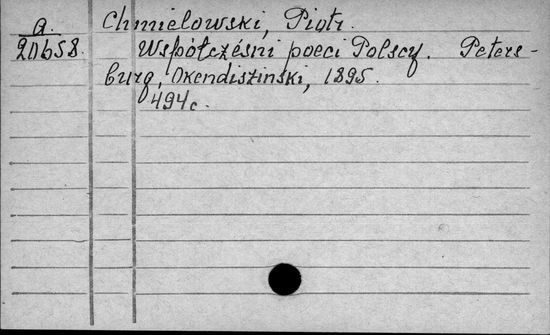 a.
20658.
Chmielowski, Piotr.
Współcześni poeci Polscy. Peters-
burg, Okendiszinski, 1895.
494c.